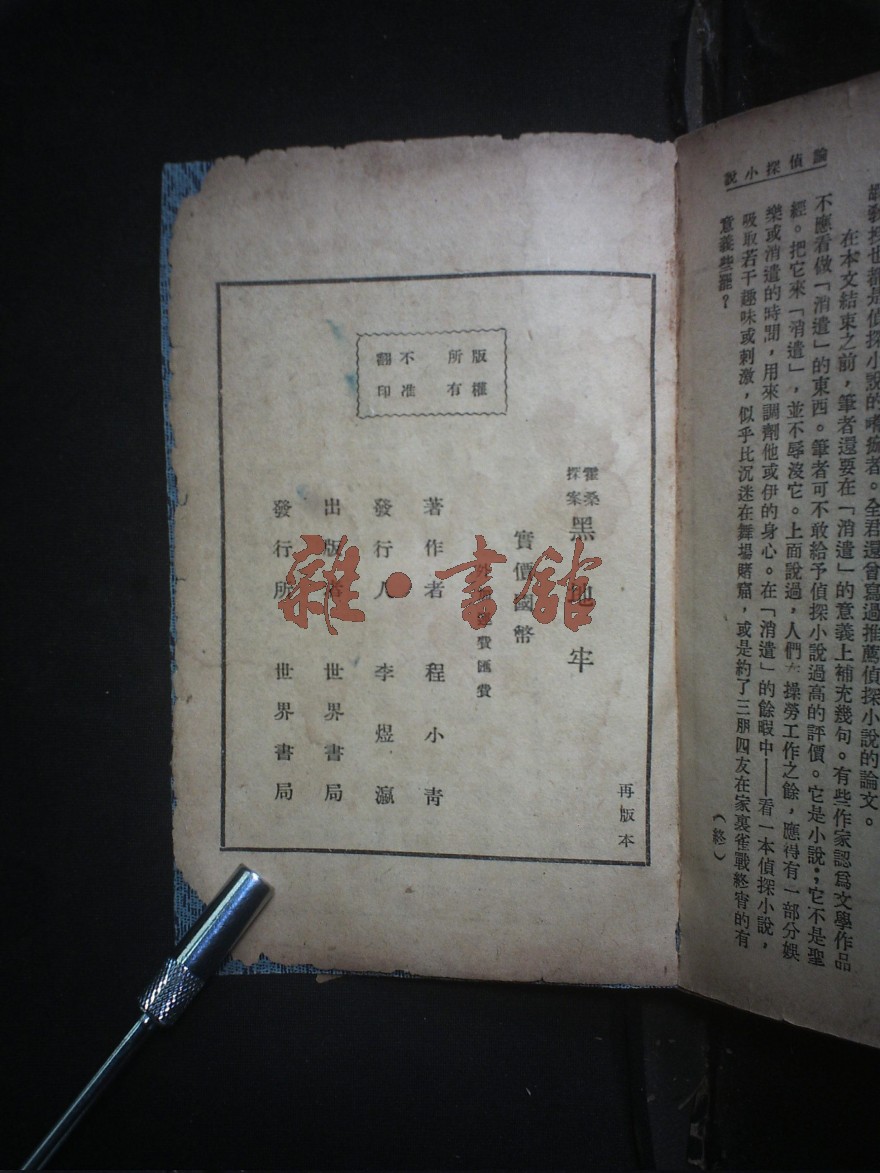 論偵探小說
在本文結束之前，筆者還要在「消遣」的意義上補充幾句。有些作家認爲文學作品
不應看做「消遣」的東西。筆者可不敢給予偵探小說過高的評價。它是小說；它不是聖
經。把它來「消遣」，並不辱沒它。上面說過，人們在操勞工作之餘，應得有一部分娛
樂或消遣的時間，用來調劑他或伊的身心。在「消遣」的餘暇中——看一本偵探小說，
吸取若干趣味或刺激，似乎比沉迷在舞場賭窟，或是約了三朋四友在家裏雀戰終宵的有
意義些罷？
（終）
版權所有
不准翻印
再版本
霍桑探案 黑地牢
實價國幣
費匯費
著作者 程小青
發行人 李煜瀛
出版者 世界書局
發行所 世界書局
雜·書館